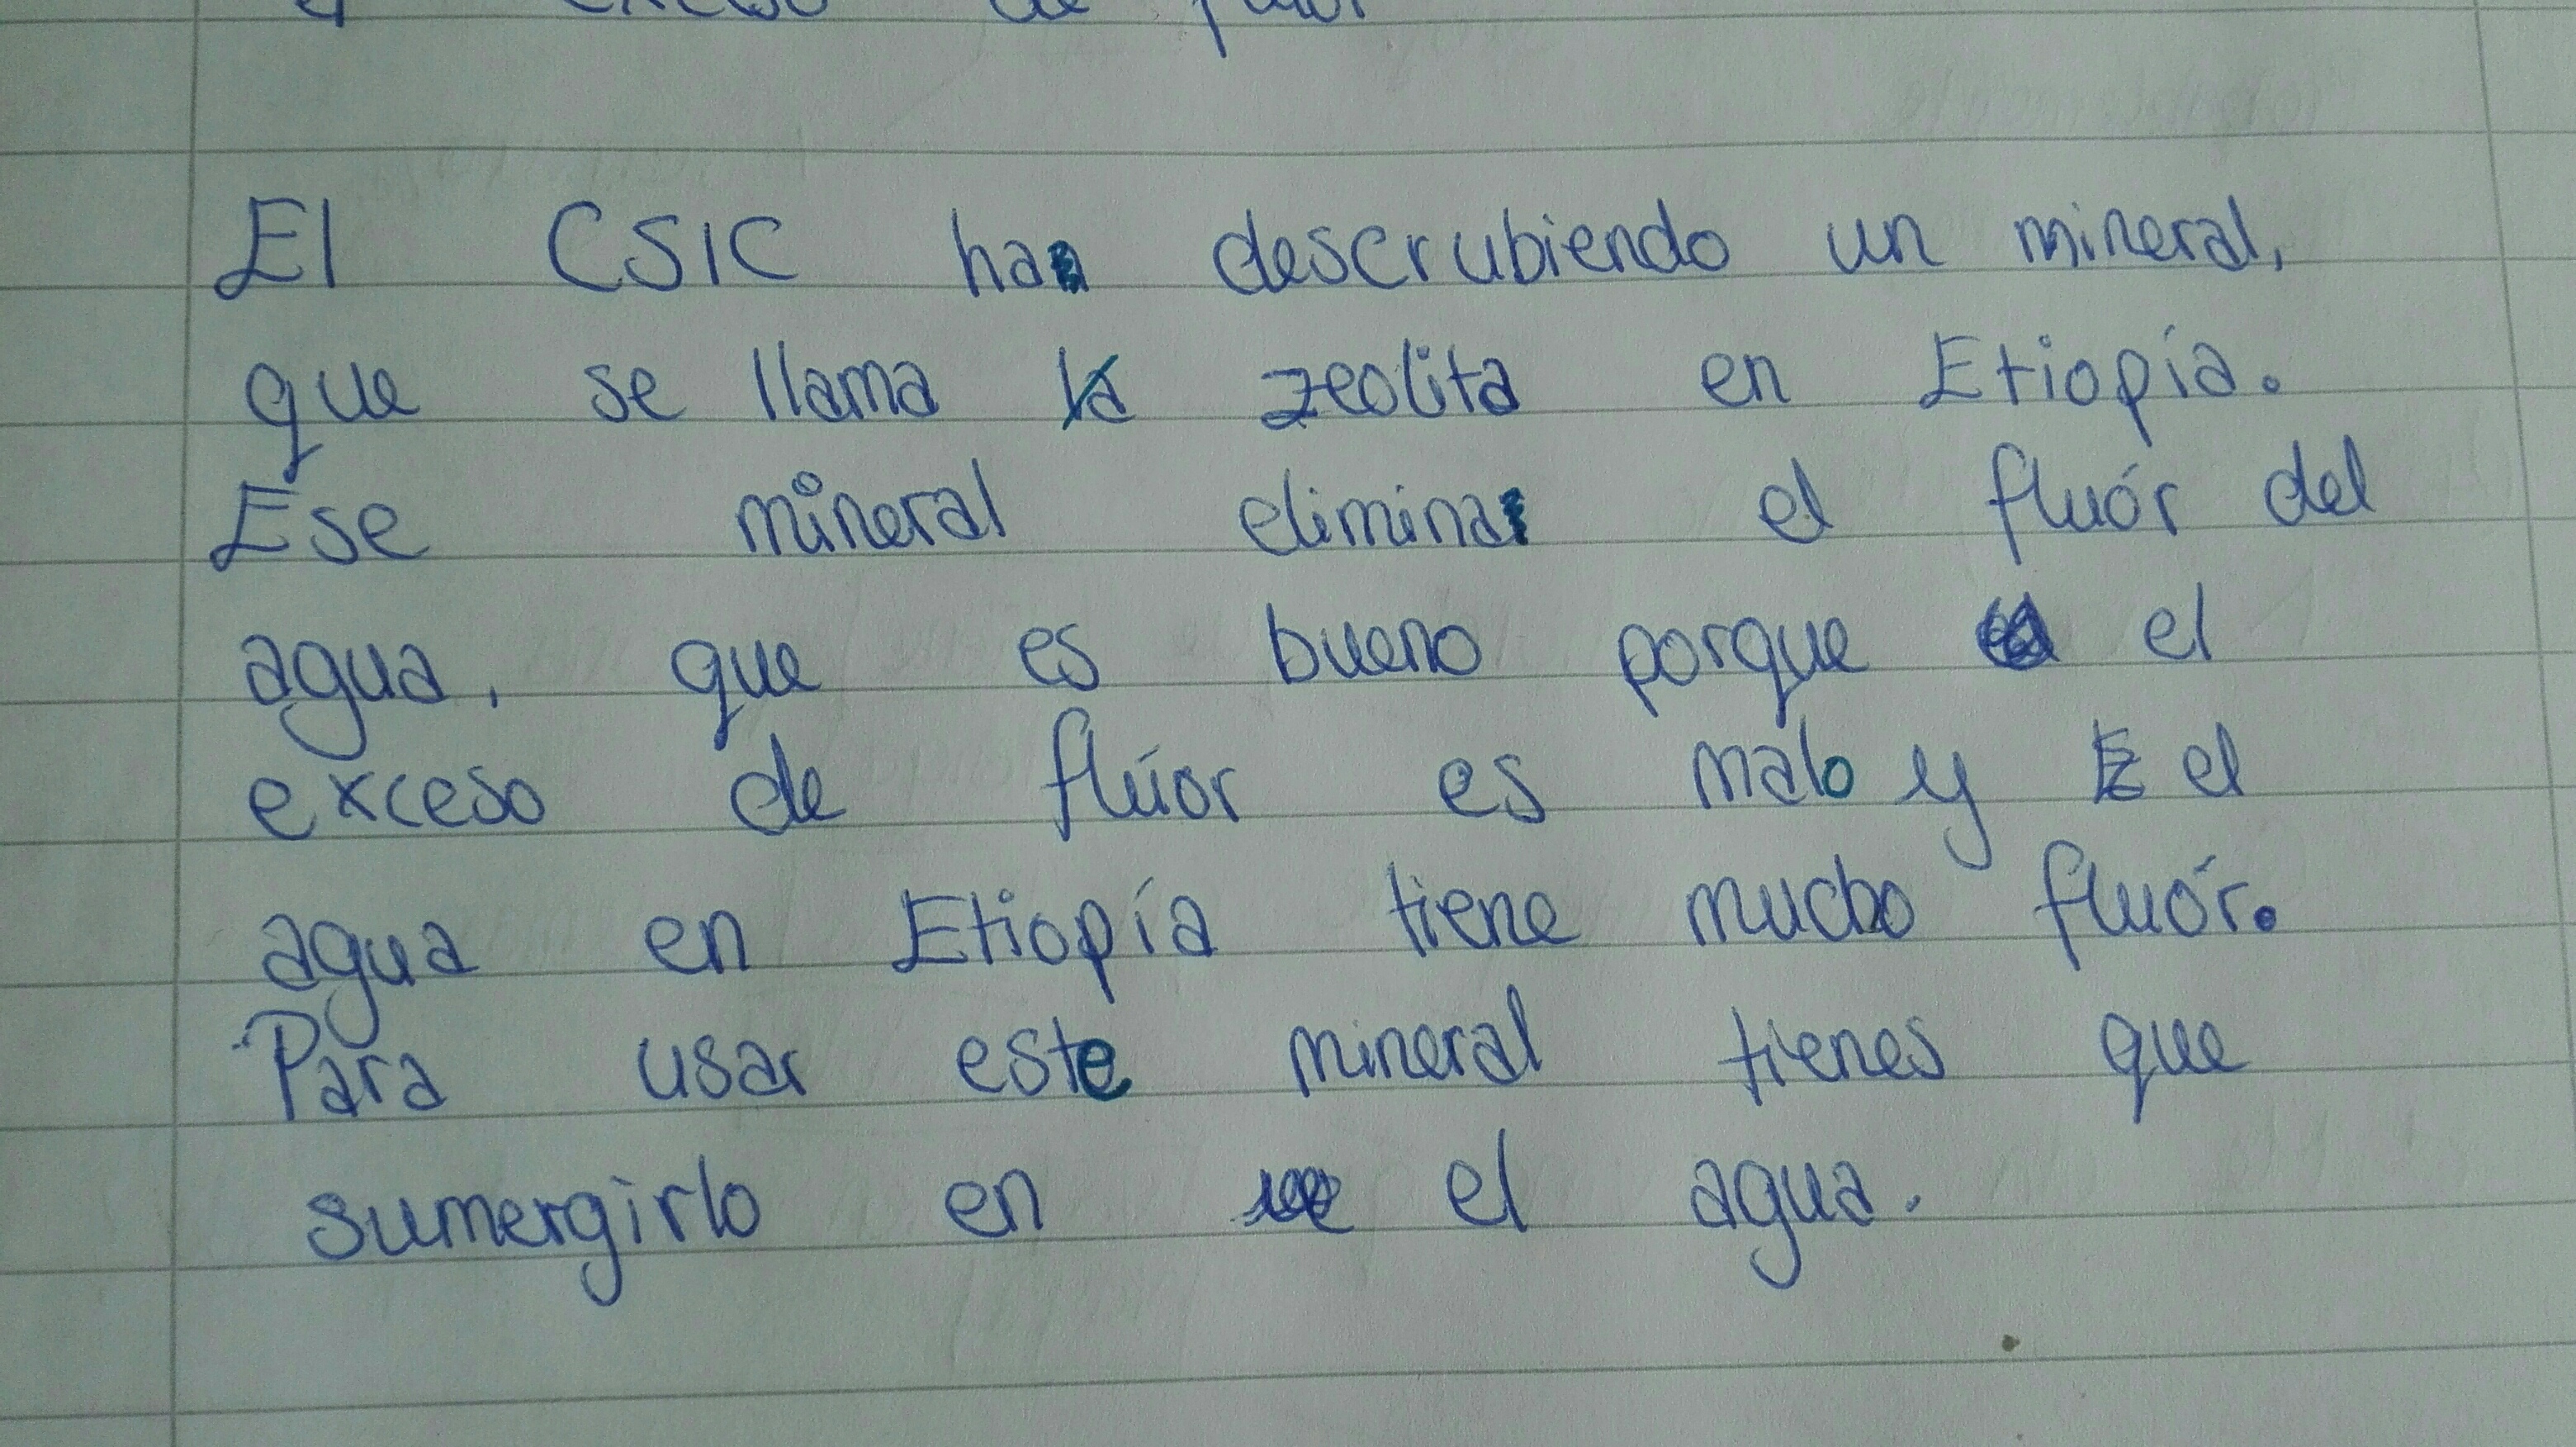 El CSIC ha descrubiendo un mineral,
que se llama zeolita en Etiopía.
Ese mineral elimina el fluór del
agua, que es bueno porque el
exceso de flúor es malo y el
agua en Etiopía tiene mucho fluór.
Para usar este mineral tienes que
sumergirlo en el agua.